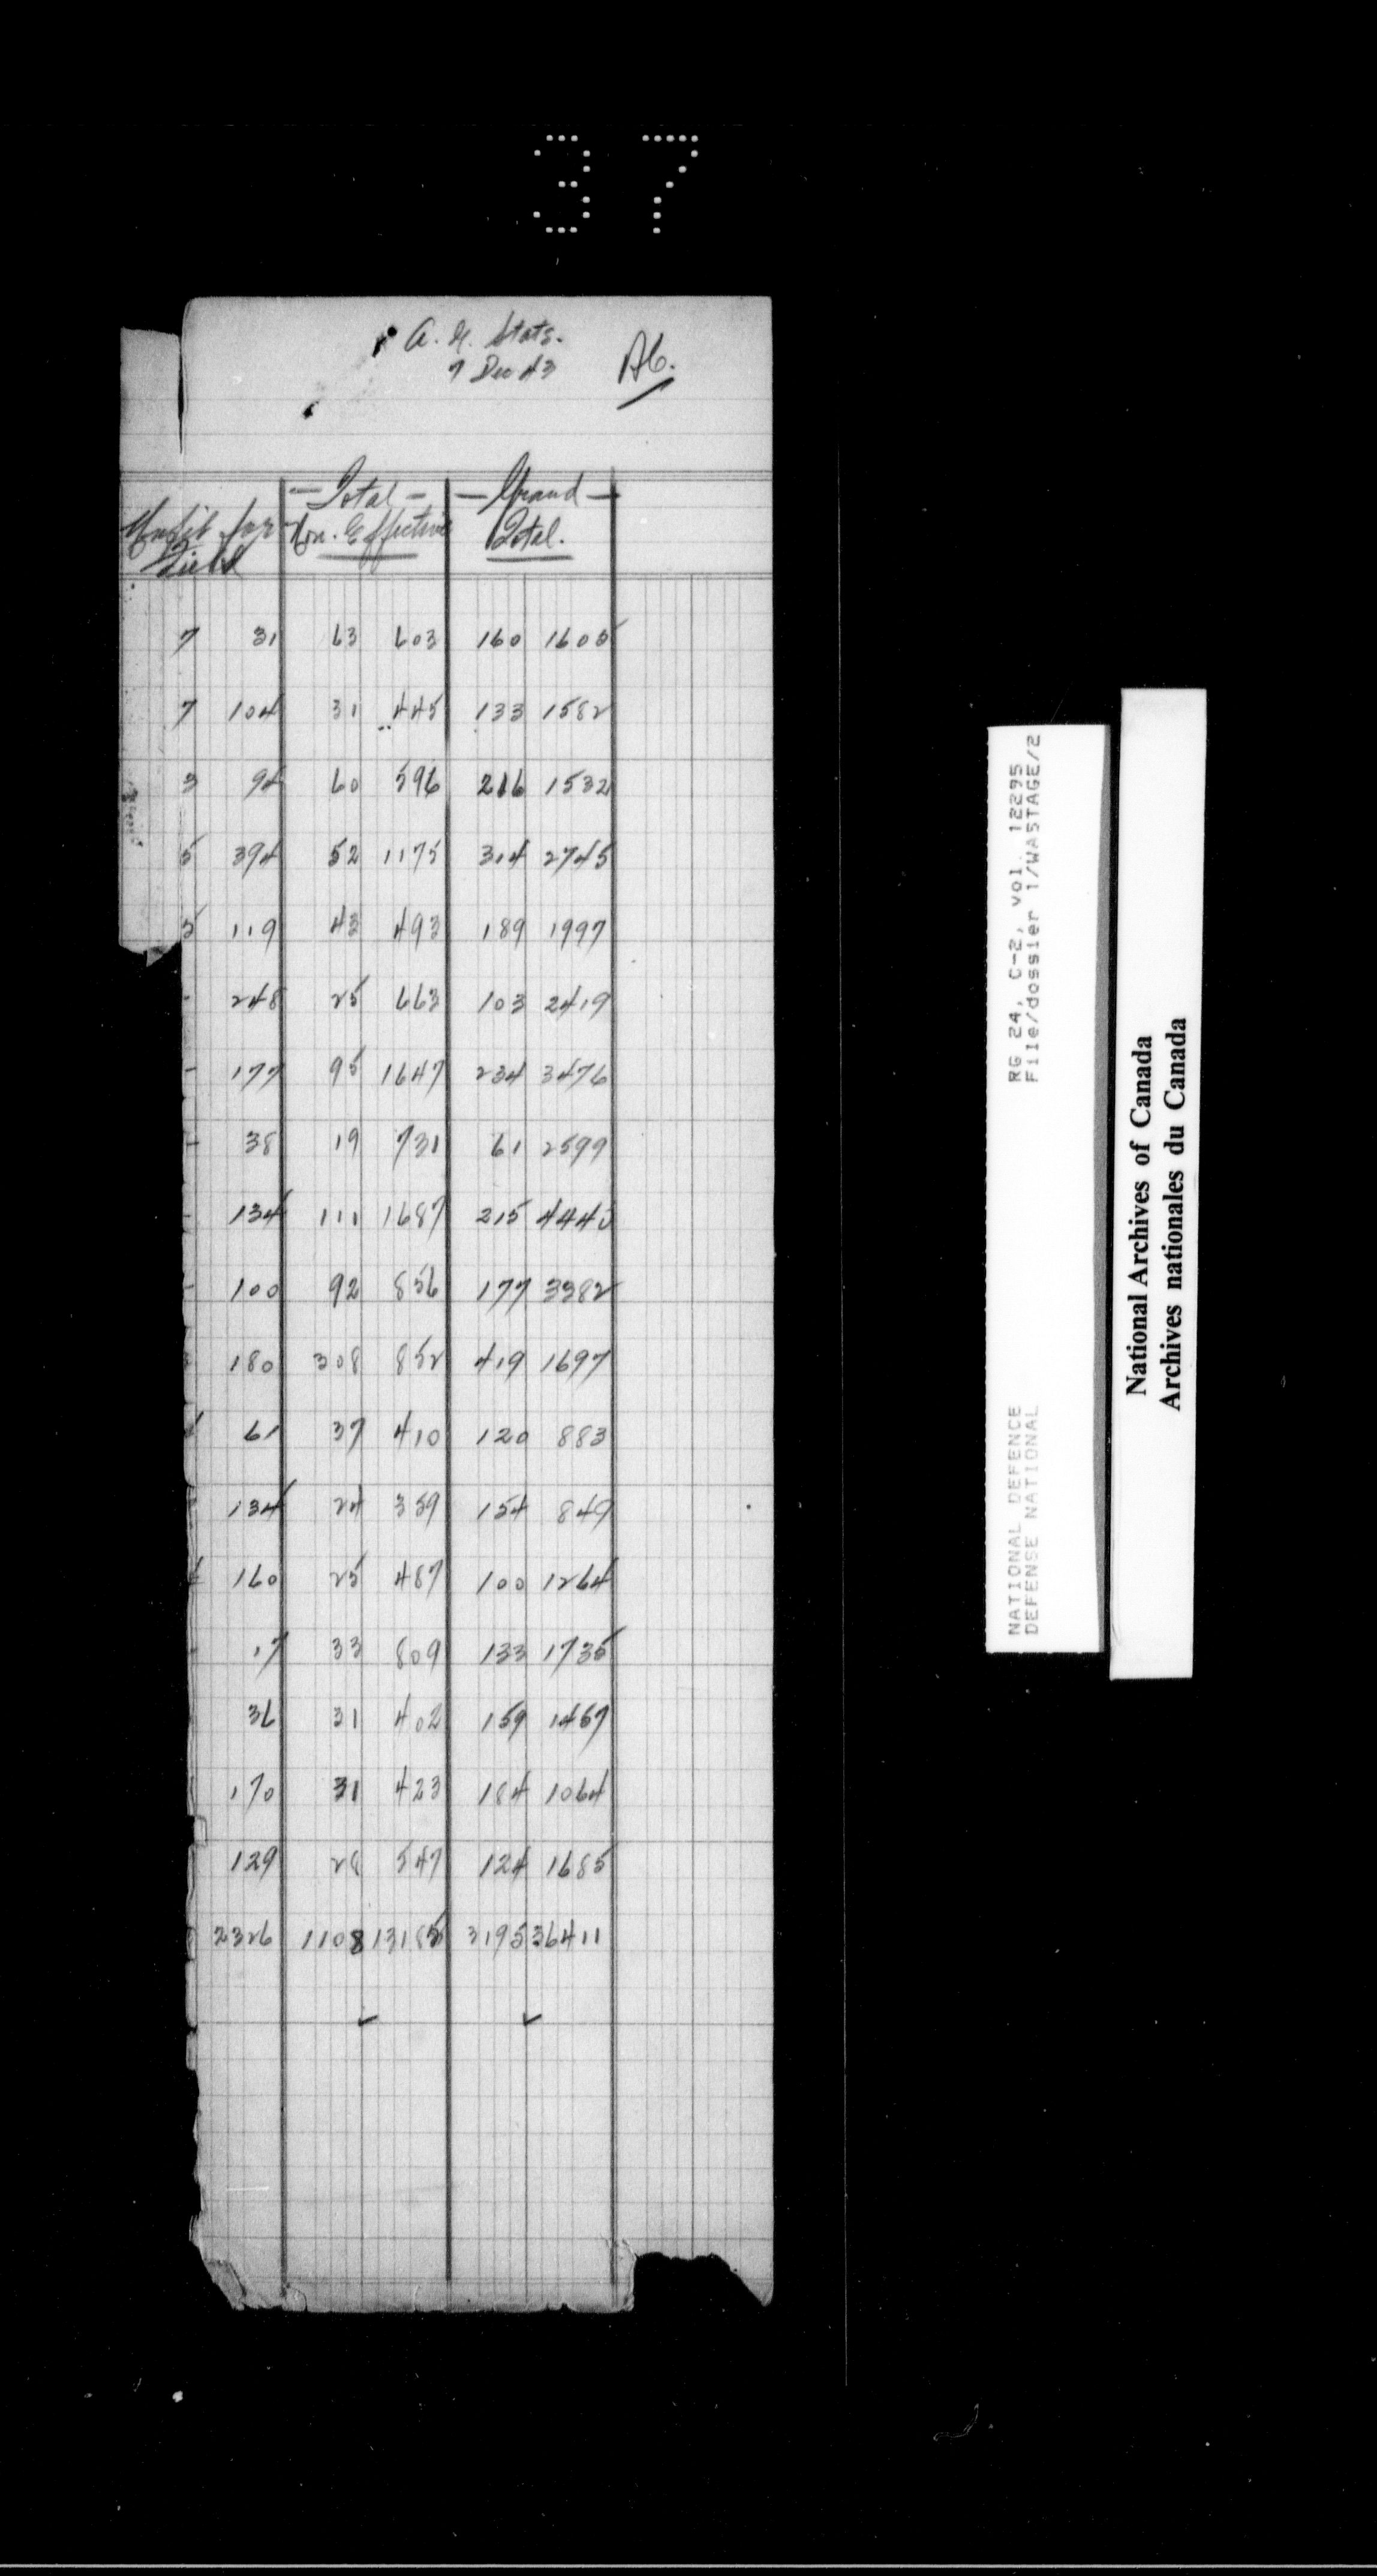 37
A. G. Stats.
7 Dec 43
A6.
Unfit for Field
— Total — Non. Effective
— Grand — Total.
7 31 63 603 160 1605
7 104 31 445 133 1582
3 94 60 596 216 1532
5 394 52 1175 314 2745
5 119 43 493 189 1997
- 248 25 663 103 2419
- 177 95 1647 234 3476
- 38 19 731 61 2599
- 134 111 1687 215 4440
- 100 92 856 177 3382
180 308 852 419 1697
61 37 410 120 883
134 24 359 154 849
160 25 487 100 1264
- 17 33 809 133 1735
36 31 402 159 1457
170 31 423 184 1064
129 28 547 124 1685
2326 1108 13185 3195 36411
✓ ✓
NATIONAL DEFENCE RG 24, C-2, vol. 12295
DEFENSE NATIONAL File/dossier 1/WASTAGE/2
National Archives of Canada
Archives nationales du Canada